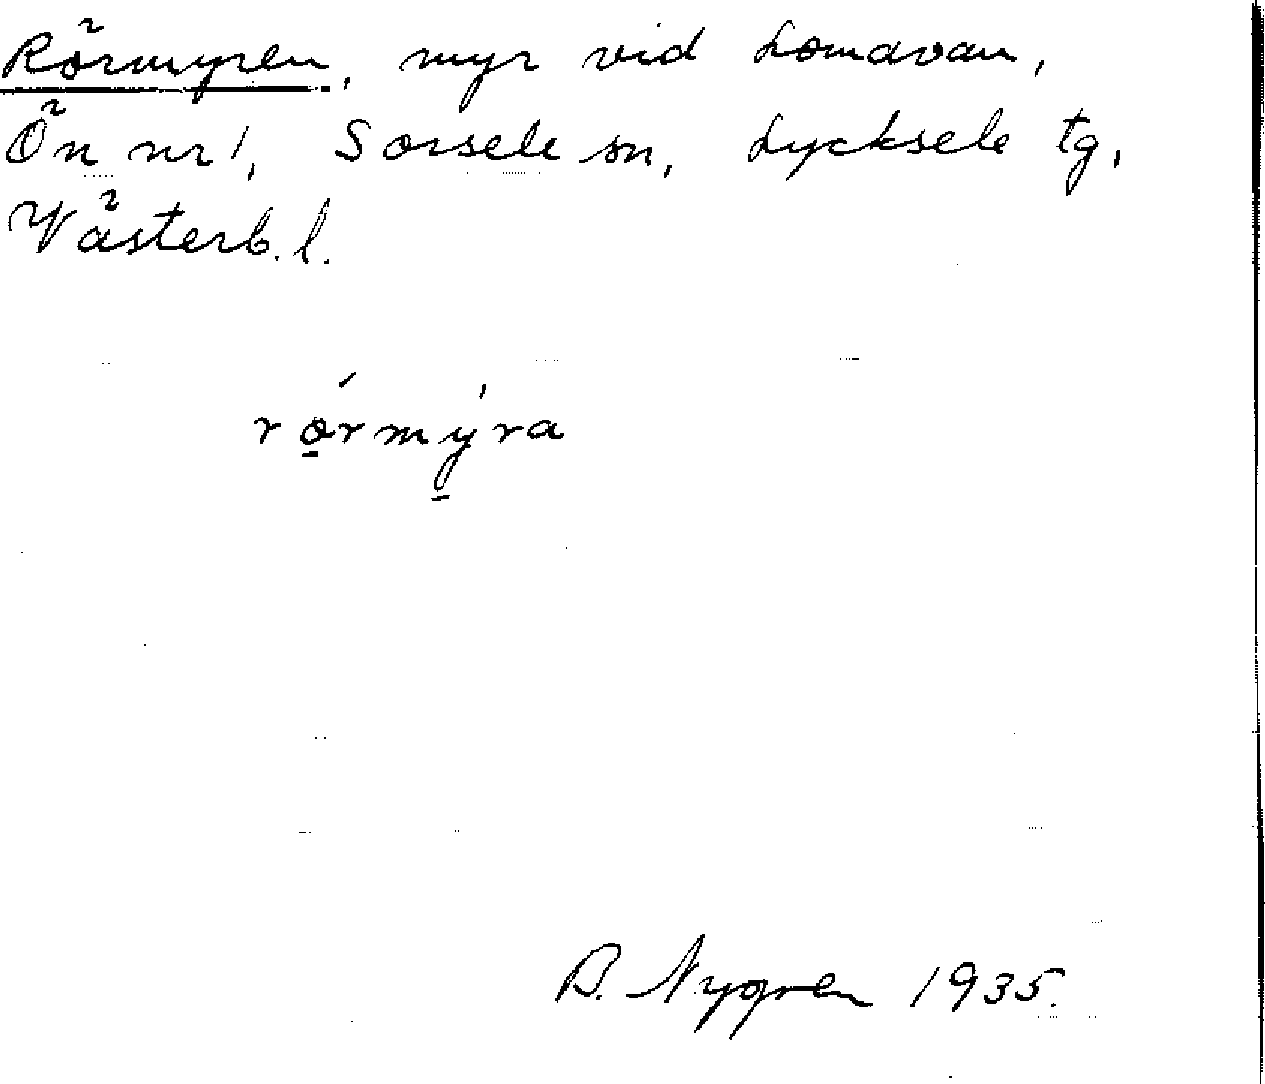 Rörmyren, myr vid Lomavan,
Ön nr 1, Sorsele sn, Lycksele tg,
Västerb. l.
rørmý̱ra
B. Nygren 1935.